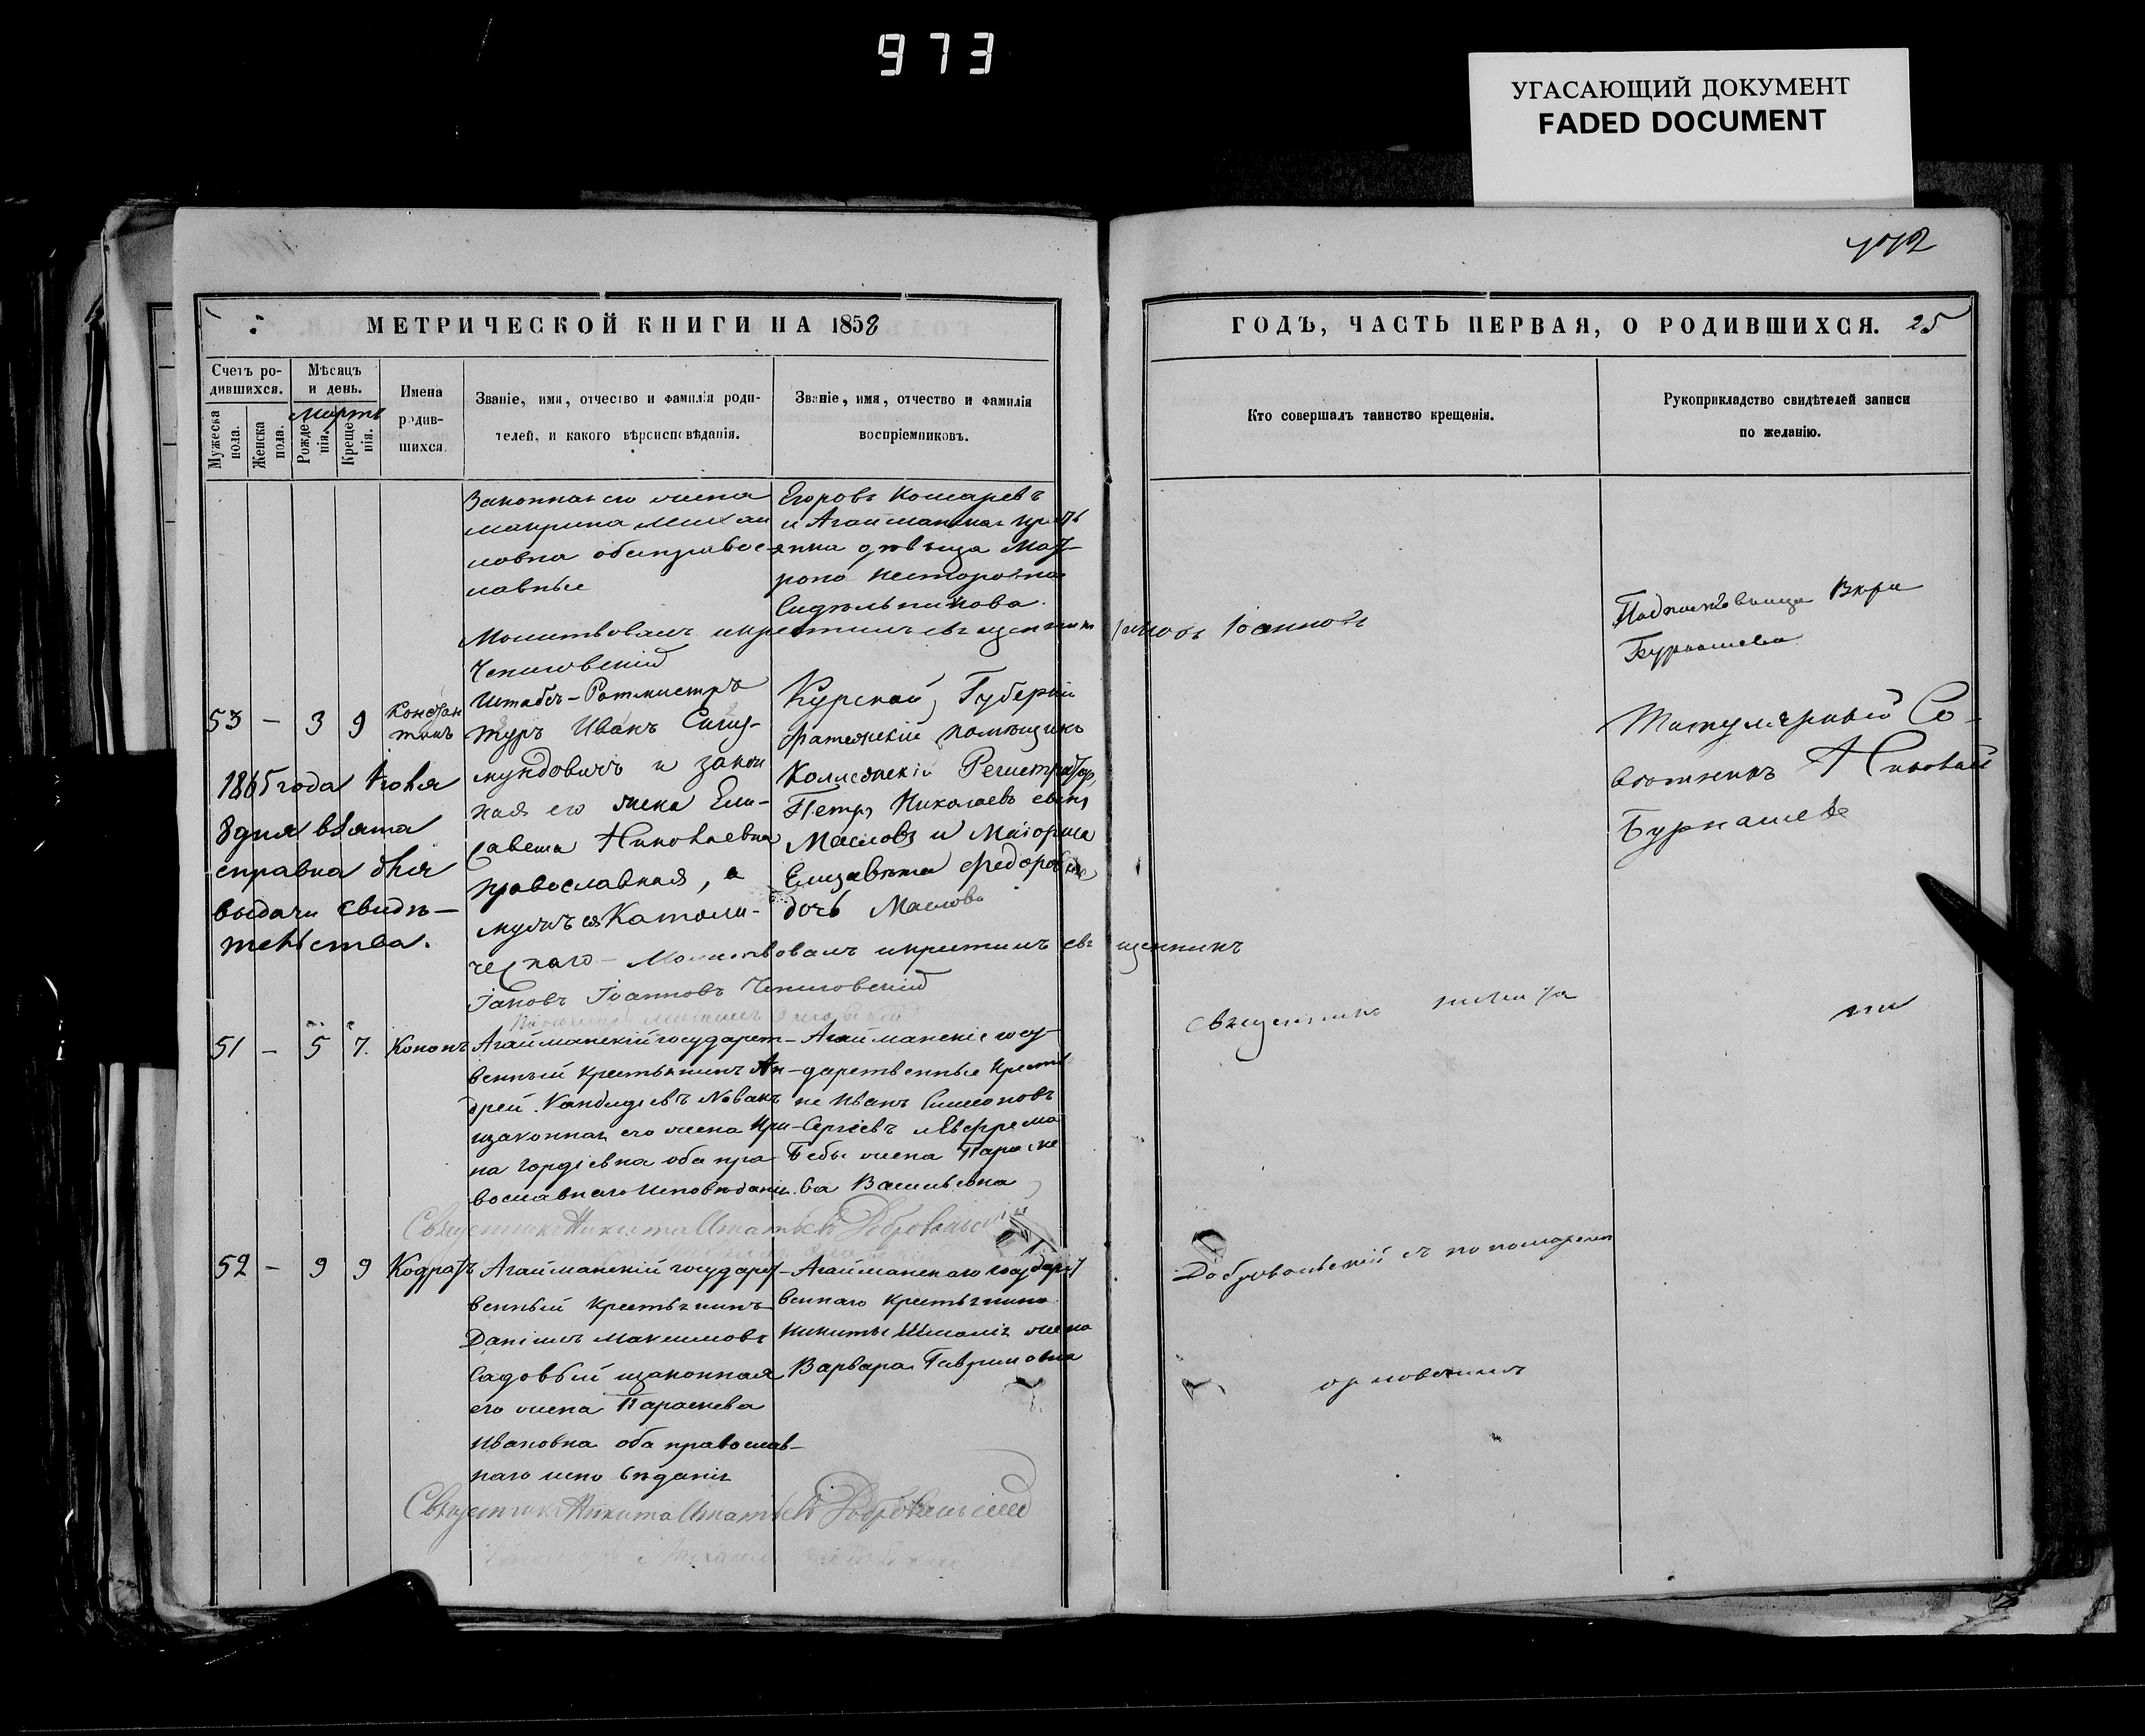 973
УГАСАЮЩИЙ ДОКУМЕНТ
FADED DOCUMENT
МЕТРИЧЕСКОЙ КНИГИ НА 1858
Счетъ ро-
дившихся.
Мужеска
пола.
Женска
пола.
Мѣсяцъ
и день.
Мартъ
Рожде-
нія.
Креще-
нія.
Имена
родив-
шихся.
Званіе, имя, отчество и фамилія роди-
телей, и какого вѣроисповѣданія.
Званіе, имя, отчество и фамилія
воспріемниковъ.
Законная его жена
Макрина Михаи
ловна оба правос-
лавные
Егоровъ Кошаревъ
и Агайманская крестъ
янка дѣвица Мат-
рона Несторовна
Сидѣльникова.
Молитвовалъ и крестилъ священникъ Іаковъ Іоанновъ
Чепиговскій
53 — 3 9 Констан
тинъ
Штабсъ-Ротмистръ
Иванъ Сигиз-
мундовичъ и закон
ная его жена Ели-
савета Николаевна
православная, а
мужъ ея Католи-
ческаго — Молитвовалъ и крестилъ священникъ
Іаковъ Іоанновъ Чепиговскій
Курской Губерніи
Фатежскій помѣщикъ
Коллежскій Регистраторъ
Петръ Николаевъ сынъ
Масловъ и Маіорша
Елизавета Федоровна
дочь Маслова
1865 года
8 дня взята
справка для
выдачи свидѣ-
тельства.
51 — 5 7. Кононъ
Агайманскій государст-
венный крестьянинъ Ан-
дрей Новакъ
и законная его жена Ири-
на Гордіевна оба пра-
вославнаго исповѣданія.
Агайманскіе госу-
дарственные крестья
не Иванъ Симеоновъ
Сергіевъ и Ефрема
Бебы жена Параске
ва Васильевна
Священникъ Никита Игнатьевъ Добровольскій
52 — 9 9 Кодратъ
Агайманскій государст-
венный крестьянинъ
Даніилъ Максимовъ
Садовый и законная
его жена Параскева
Ивановна оба православ-
наго исповѣданія
Агайманскаго государст
веннаго крестьянина
Никиты жена
Варвара Гавриловна
Священникъ Никита Игнатьевъ Добровольскій
772
ГОДЪ, ЧАСТЬ ПЕРВАЯ, О РОДИВШИХСЯ. 25
Кто совершалъ таинство крещенія.
Рукоприкладство свидѣтелей записи
по желанію.
Вѣра
Бурнашева
Титулярный Со-
вѣтникъ Николай
Бурнашевъ
Священникъ Никита
Добровольскій съ пономаремъ